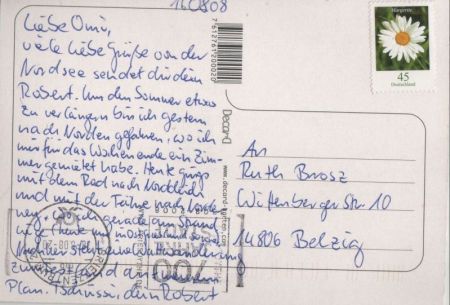 16.08.08
Liebe Omi,
viele liebe Grüße von der
Nordsee sendet dir dein
Robert. Um den Sommer etwas
zu verlängern bin ich gestern
nach Norden gefahren, wo ich
mir für das Wochenende ein Zim-
mer gemietet habe. Heute ging's
mit dem Rad nach Norddeich
und mit der Fähre nach
gerade am Strand
liege. Heute
Nachher steht
und
Plan. Tschüssi, dein Robert
7612761200020
Decard
www.decard-karten.com
Margerite
45
Deutschland
An
Ruth Brosz
Wittenberger Str. 10
14806 Belzig